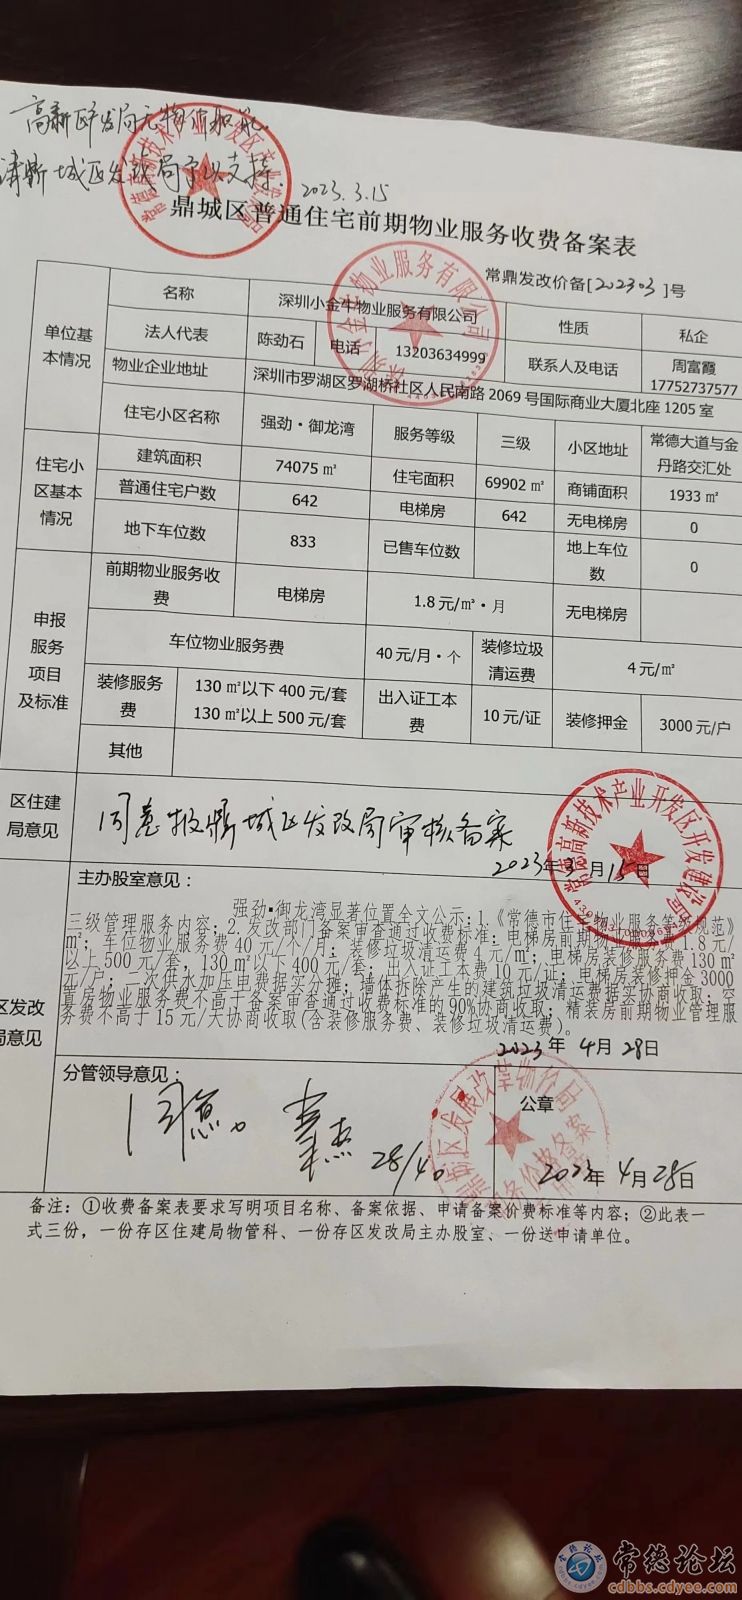 高新区产发局无物价职能,
请鼎城区发改局予以支持. 2023.3.15
鼎城区普通住宅前期物业服务收费备案表
常鼎发改价备[202303]号
单位基本情况 名称 深圳小金牛物业服务有限公司 性质 私企
法人代表 陈劲石 电话 13203634999 联系人及电话 周富霞 17752737577
物业企业地址 深圳市罗湖区罗湖桥社区人民南路2069号国际商业大厦北座1205室
住宅小区基本情况 住宅小区名称 强劲·御龙湾 服务等级 三级 小区地址 常德大道与金丹路交汇处
建筑面积 74075㎡ 住宅面积 69902㎡ 商铺面积 1933㎡
普通住宅户数 642 电梯房 642 无电梯房 0
地下车位数 833 已售车位数 地上车位数 0
申报服务项目及标准 前期物业服务收费 电梯房 1.8元/㎡·月 无电梯房
车位物业服务费 40元/月·个 装修垃圾清运费 4元/㎡
装修服务费 130㎡以下400元/套 130㎡以上500元/套 出入证工本费 10元/证 装修押金 3000元/户
其他
区住建局意见 同意报鼎城区发改局审核备案
2023年3月15日
常德高新技术产业开发区开发建设局
区发改局意见 主办股室意见：
强劲·御龙湾显著位置全文公示:1.《常德市住宅物业服务等级规范》
三级管理服务内容；2.发改部门备案审查通过收费标准：电梯房前期物业服务费1.8元/
㎡；车位物业服务费40元/个/月；装修垃圾清运费4元/㎡；电梯房装修服务费130㎡
以上500元/套，130㎡以下400元/套；出入证工本费10元/证；电梯房装修押金3000
元/户；二次供水加压电费据实分摊；墙体拆除产生的建筑垃圾清运费据实协商收取；空
置房物业服务费不高于备案审查通过收费标准的90%协商收取；精装房前期物业管理服
务费不高于15元/天协商收取(含装修服务费、装修垃圾清运费)。
2023年4月28日
分管领导意见： 公章
同意。
28/4。
2023年4月28日
备注：①收费备案表要求写明项目名称、备案依据、申请备案价费标准等内容；②此表一
式三份，一份存区住建局物管科、一份存区发改局主办股室、一份送申请单位。
常德论坛
cdbbs.cdyee.com